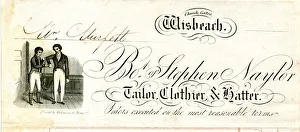 Wisbeach,
Bot. of Stephen Naylor
Tailor, Clothier, & Hatter.
Orders executed on the most reasonable terms